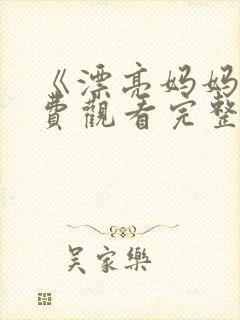 《漂亮妈妈
費觀看完整
吴家樂